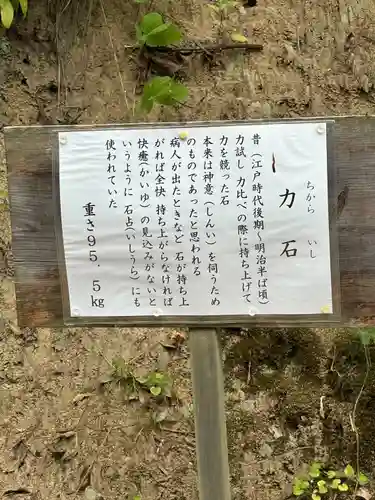 力石
ちから いし
昔(江戸時代後期~明治半ば頃)
力試し 力比べの際に持ち上げて
力を競った石
本来は神意(しんい)を伺うため
のものであったと思われる
病人が出たときなど 石が持ち上
がれば全快 持ち上がらなければ
快癒(かいゆ)の見込みがないと
いうように 石占(いしうら)にも
使われていた
重さ95.5kg